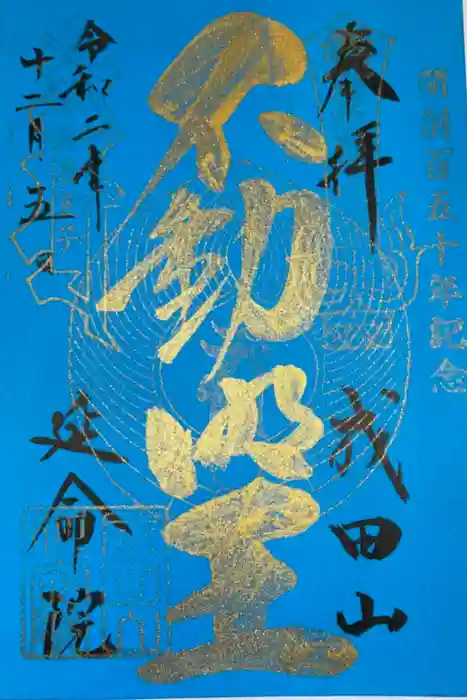 開創百五十年記念
奉拝
成田山
不動明王
令和二年
十二月五日
延命院